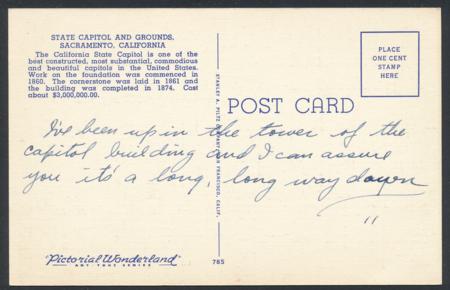 STATE CAPITOL AND GROUNDS,
SACRAMENTO, CALIFORNIA
The California State Capitol is one of the
best constructed, most substantial, commodious
and beautiful capitols in the United States.
Work on the foundation was commenced in
1860. The cornerstone was laid in 1861 and
the building was completed in 1874. Cost
about $3,000,000.00.
PLACE
ONE CENT
STAMP
HERE
STANLEY A. PILTZ COMPANY, SAN FRANCISCO, CALIF.
POST CARD
I've been up in the tower of the
capitol building and I can assure
you it's a long, long way down
"Pictorial Wonderland"
ART-TONE SERIES
785